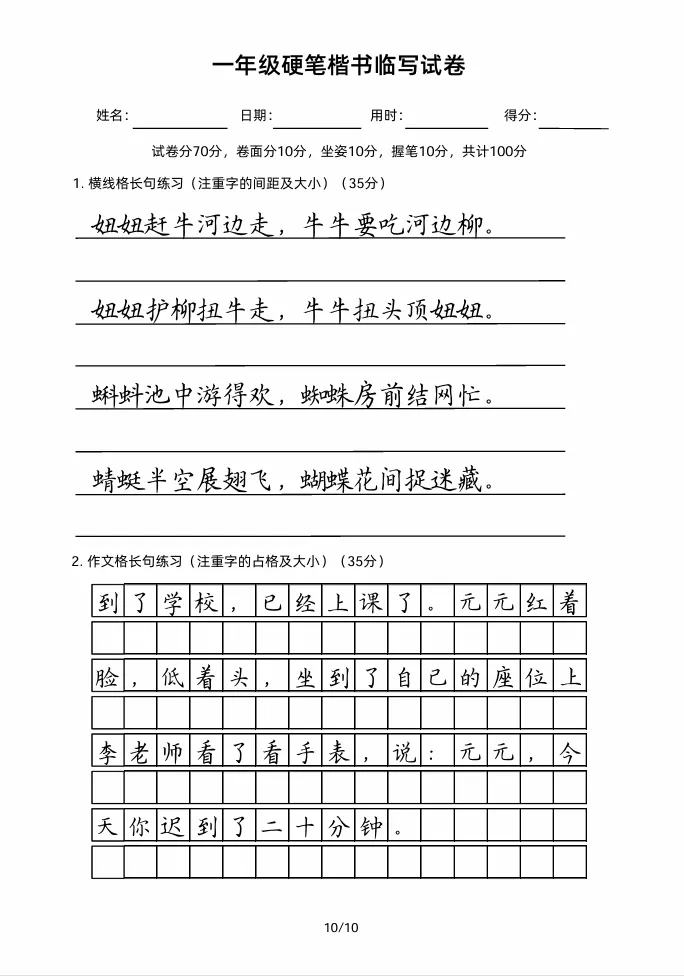 一年级硬笔楷书临写试卷
姓名： 日期： 用时： 得分：
试卷分70分，卷面分10分，坐姿10分，握笔10分，共计100分
1. 横线格长句练习（注重字的间距及大小）（35分）
妞妞赶牛河边走，牛牛要吃河边柳。
妞妞护柳扭牛走，牛牛扭头顶妞妞。
蝌蚪池中游得欢，蜘蛛房前结网忙。
蜻蜓半空展翅飞，蝴蝶花间捉迷藏。
2. 作文格长句练习（注重字的占格及大小）（35分）
到了学校，已经上课了。元元红着
脸，低着头，坐到了自己的座位上
李老师看了看手表，说：元元，今
天你迟到了二十分钟。
10/10